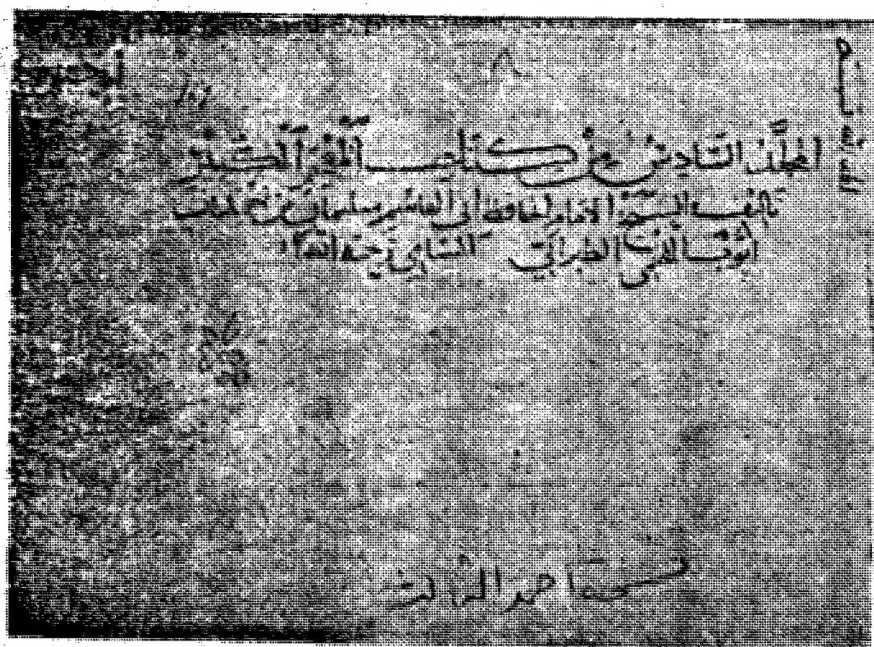 ٨
المجلد السادس من كتاب المعجم الكبير
تاليف الشيخ الامام الحافظ ابي القاسم سليمان بن احمد بن
ايوب اللخمي الطبراني الشامي رحمه الله
نسخة احمد الثالث